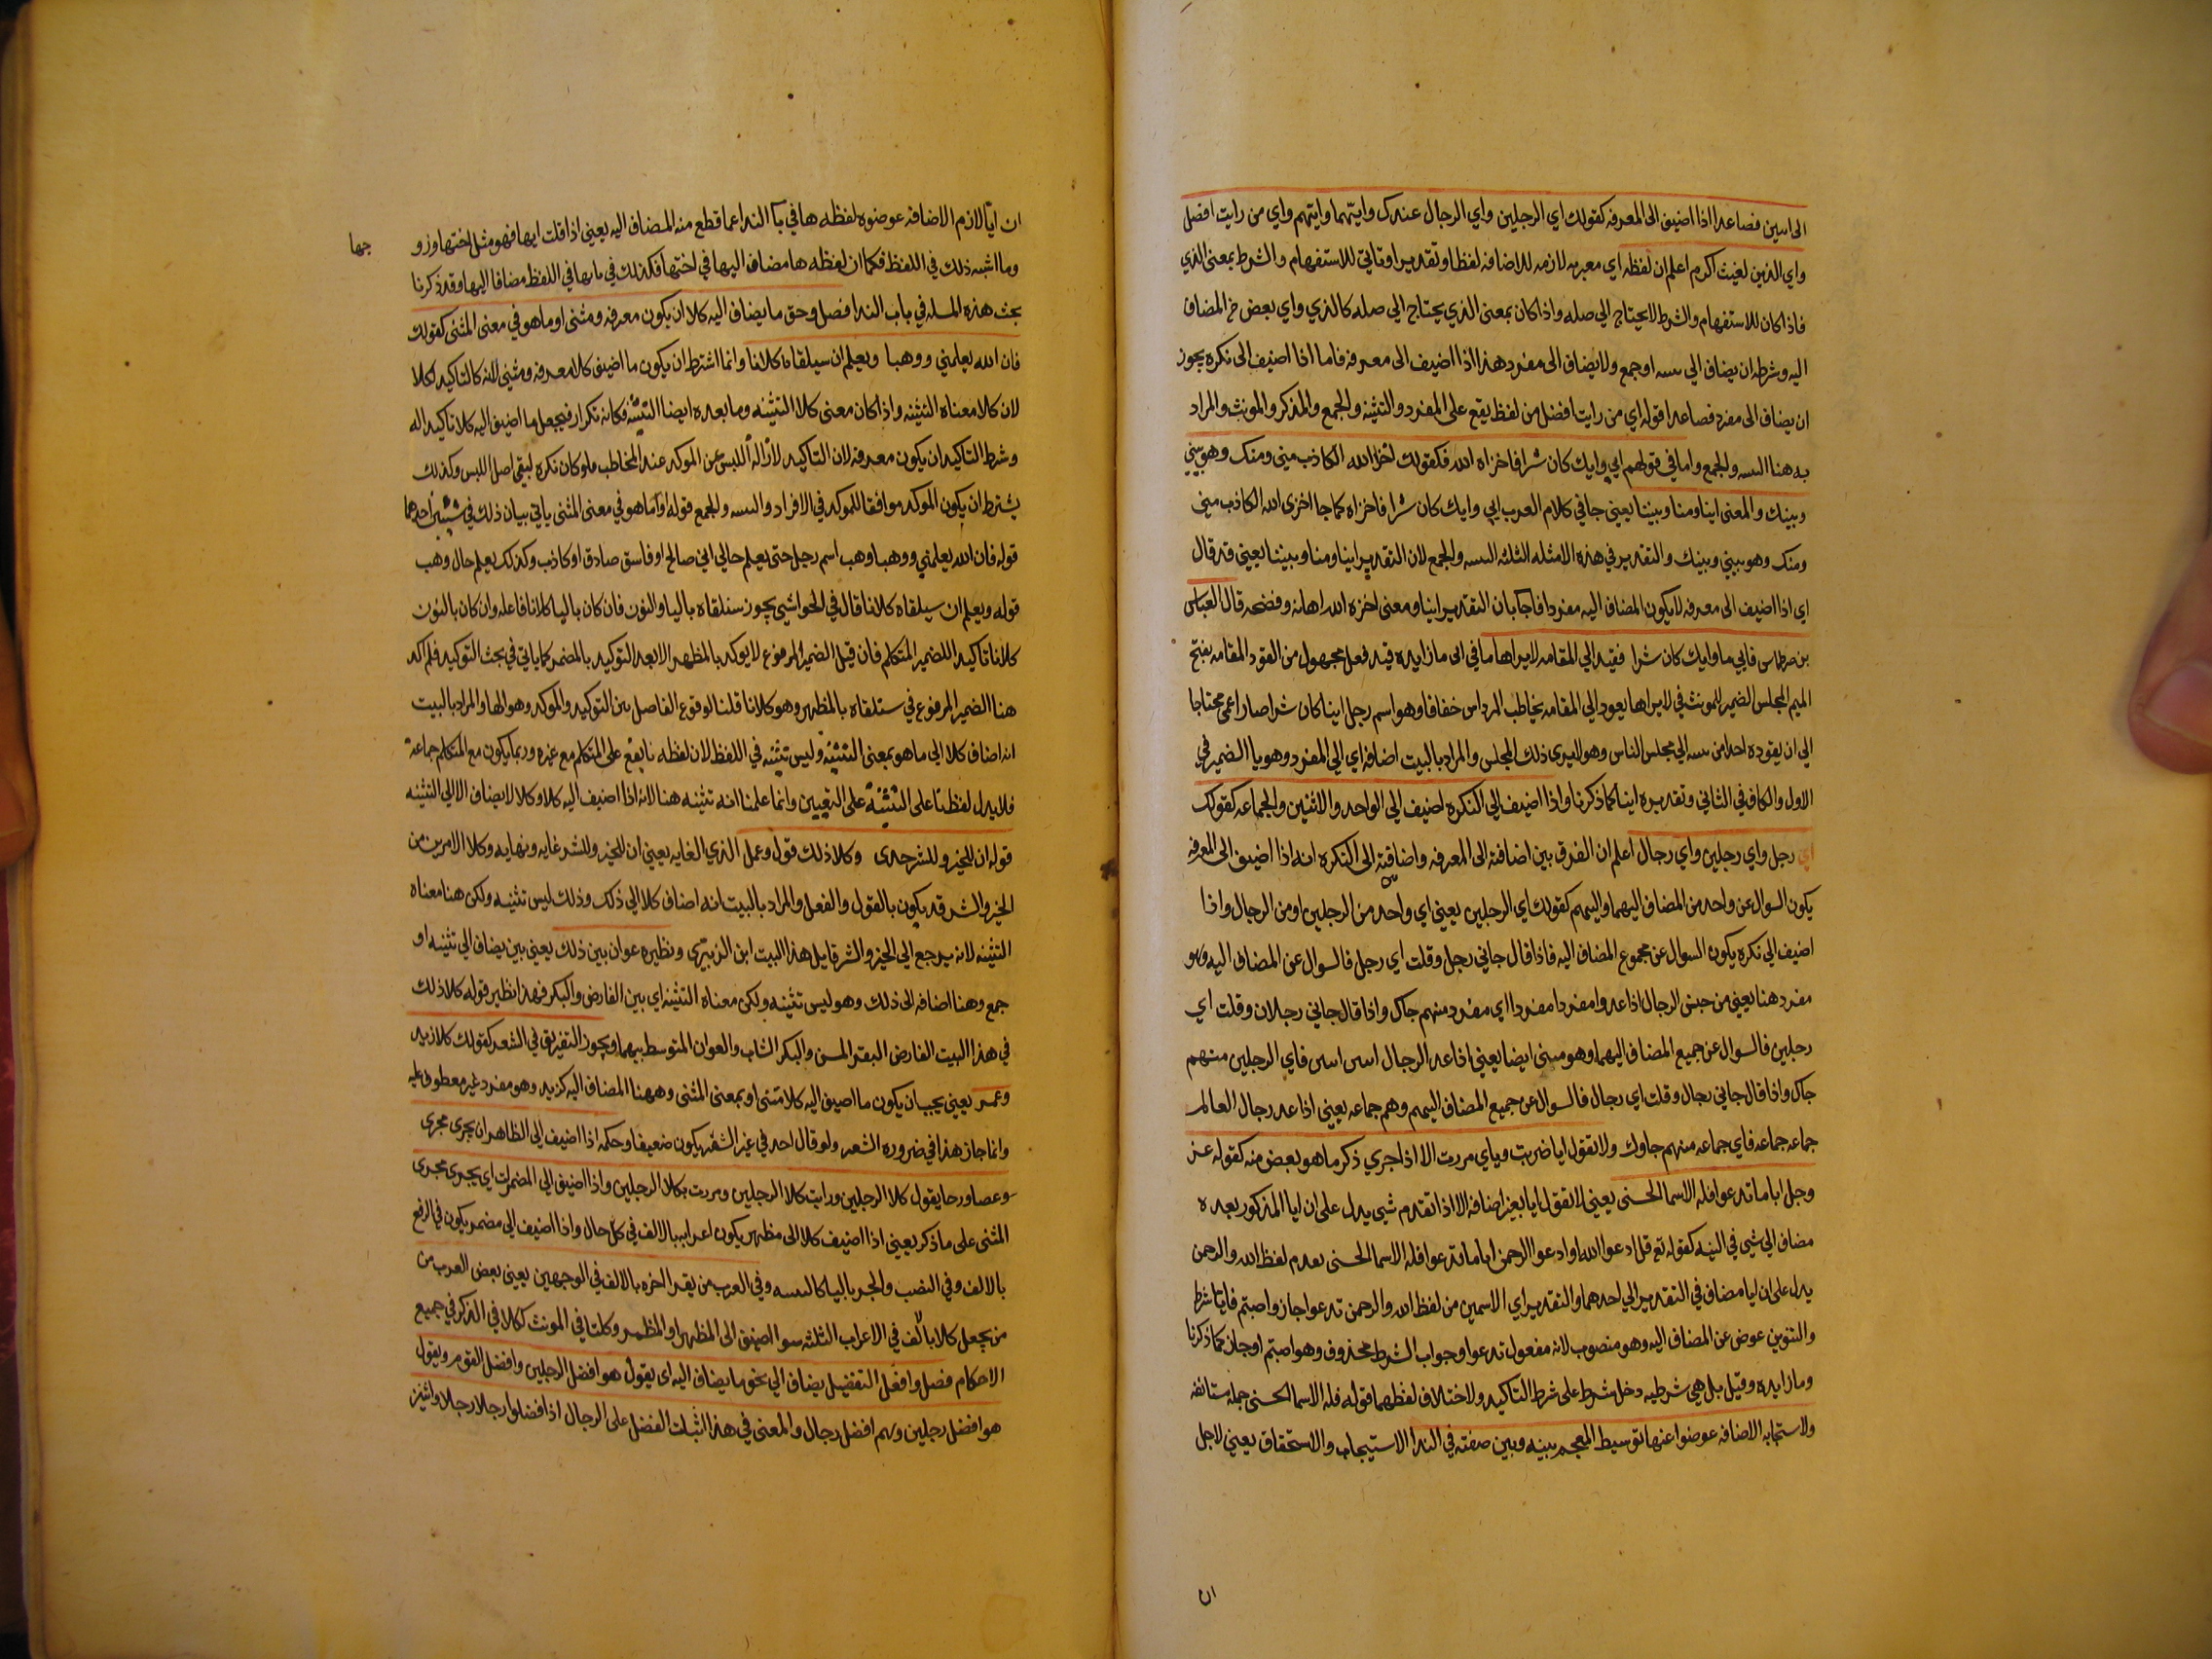 الى اسين فصاعدا اذا اضيق الى المعرفه كقولك اي الرجلين واي الرجال عندك وايهما وايهم واي من رايت افضل
واي الذين لغيت اكرم اعلم ان لفظه اي معربه لازمه للاضافه لفظا وتقديرا وتاتي للاستفهام والشرط بمعنى الذي
فاذا كان للاستفهام والشرط لا يحتاج الي صله واذا كان بمعنى الذي يحتاج الي صله كالذي واي بعض من المضاف
اليه وشرطه ان يضاف الي سسه او جمع ولا يضاف الى مفرد هذا اذا اضيف الى معرفه فاما اذا اضيف الى نكره يجوز
ان يضاف الى مفرد فصاعدا قوله اي من رايت افضل من لفظ يقع على المفرد والتثنيه والجمع والمذكر والمونث والمراد
به هنا السسه والجمع واما في قولهم ايي وايك كان شرا فاخزاه الله فكقولك اخزا الله الكاذب مني ومنك وهو بيني
وبينك والمعنى اينا ومنا وبيننا يعني جا في كلام العرب ايي وايك كان شرا فاخزاه كما جا اخزى الله الكاذب مني
ومنك وهو بيني وبينك والتقدير في هذه الامثله الثلثه السسه والجمع لان التقدير اينا ومنا وبيننا يعني قد قال
اي اذا اضيف الى معرفه لا يكون المضاف اليه مفردا فاجاب ان التقدير اينا ومعنى اخزه الله اهانه وفضحه قال العباس
بن مرداس فايي ما وايك كان شرا فقيد الي المقامه لا يراها ما في ايى ما زايده قيد فعل مجهول من القود المقامه بفتح
الميم المجلس الضمير المونث في لا يراها يعود الي المقامه يخاطب المرداس خفافا وهو اسم رجل اينا كان شرا صار اعمى محتاجا
الي ان يقوده احد من سسه الي مجلس الناس وهو لا يرى ذلك المجلس والمراد بالبيت اضافه اي الي المفرد وهو يا الضمير في
الاول والكاف في الثاني وتقديره اينا كما ذكرنا واذا اضيف الي النكره اضيف الي الواحد والاثنين والجماعه كقولك
اي رجل واي رجلين واي رجال اعلم ان الفرق بين اضافته الى المعرفه واضافته الى النكره انه اذا اضيف الى المعرفه
يكون السوال عن واحد من المضاف اليهما واليهم كقولك اي الرجلين يعني اي واحد من الرجلين او من الرجال واذا
اضيف الي نكره يكون السوال عن مجموع المضاف اليه فاذا قال جاني رجل وقلت اي رجل فالسوال عن المضاف اليه وهو
مفرد هنا يعني من جنس الرجال اذا عدوا مفردا مفردا اي مفرد منهم جاك واذا قال جاني رجلان وقلت اي
رجلين فالسوال عن جميع المضاف اليهما وهو مثنى ايضا يعني اذا عد الرجال اسين اسين فاي الرجلين منهم
جاك واذا قال جاني رجال وقلت اي رجال فالسوال عن جميع المضاف اليهم وهم جماعه يعني اذا عد رجال العالم
جماعه جماعه فاي جماعه منهم جاوك ولا تقول ايا ضربت وباي مررت الا اذا جري ذكر ما هو بعض منه كقوله عز
وجل ايا ما تدعوا فله الاسما الحسنى يعني لا تقول ايا بغير اضافه الا اذا تقدم شي يدل على ان ايا المذكور بعده
مضاف الي شي في النيه كقوله تع قل ادعوا الله او ادعوا الرحمن ايا ما تدعوا فله الاسما الحسنى بعدم لفظ الله والرحمن
يدل على ان ايا مضاف في التقدير الي احدهما والتقدير اي الاسمين من لفظ الله والرحمن تدعوا جاز واصبتم فايا شرط
والتنوين عوض عن المضاف اليه وهو منصوب لانه مفعول تدعوا وجواب الشرط محذوف وهو اصبتم او جاز كما ذكرنا
وما زايده وقيل بل هي شرطيه دخل شرط على شرط التاكيد ولاختلاف لفظهما قوله فله الاسما الحسنى جمله مستانفه
ولاستجابه الاضافه عوضوا عنها توسيط المعجم بينه وبين صفته في الندا الاستيجاب والاستحقاق يعني لاجل
ان
ان ايا لازم الاضافه عوضوه لفظه ها في يا الندا عما قطع منه المضاف اليه يعني اذا قلت ايها فهو مثل اختها وزو
جها
وما اشبه ذلك في اللفظ فكما ان لفظه ها مضاف اليها في اختها فكذلك في ايها في اللفظ مضافا اليها وقد ذكرنا
بحث هذه المسله في باب الندا فصل وحق ما يضاف اليه كلا ان يكون معرفه ومثنى او ما هو في معنى المثنى كقولك
فان الله يعلمني ووهبا ويعلم ان سيلقاه كلانا وانما اشترط ان يكون ما اضيف كلا معرفه ومثنى لانه كالتاكيد لكلا
لان كلا معناه التثنيه واذا كان معنى كلا التثنيه وما بعده ايضا التثنيه فكانه تكرار فيجعل ما اضيف اليه كلا تاكيد اله
وشرط التاكيد ان يكون معرفه لان التاكيد لازاله اللبس عن الموكد عند المخاطب فلو كان نكره لبقي اصل اللبس وكذلك
يشترط ان يكون الموكد موافقا للموكد في الافراد والسسه والجمع قوله او ما هو في معنى المثنى ياتي بيان ذلك في شيئين احدهما
قوله فان الله يعلمني ووهبا وهب اسم رجل حتى يعلم حالي ايي صالح او فاسق صادق او كاذب وكذلك يعلم حال وهب
قوله ويعلم ان سيلقاه كلانا قال في الحواشي يجوز سنلقاه باليا والنون فان كان باليا كلانا فاعله وان كان بالنون
كلانا تاكيد اللضمير المتكلم فان قيل الضمير المرفوع لا يوكد بالمظهر الا بعد التوكيد بالمضمر كما ياتي في بحث التوكيد فلم اكد
هنا الضمير المرفوع في ستلقاه بالمظهر وهو كلانا قلنا لوقوع الفاصل بين التوكيد والموكد وهو الها والمراد بالبيت
انه اضاف كلا الي ما هو بمعنى التثنيه وليس تثنيه في اللفظ لان لفظه نا يقع على المتكلم مع غيره وربما يكون مع المتكلم جماعه
فلا يدل لفظ نا على التثنيه على التعيين وانما علمنا انه تثنيه هنا لانه اذا اضيف اليه كلا وكلا لا يضاف الا الي التثنيه
قوله ان للخير وللشر مدى وكلا ذلك قول وعمل الذي الغايه يعني ان للخير وللشر غايه ونهايه وكلا الامرين من
الخير والشر قد يكون بالقول والفعل والمراد بالبيت انه اضاف كلا الي ذلك وذلك ليس تثنيه ولكن هنا معناه
التثنيه لانه يرجع الي الخير والشر قايل هذا البيت ابن الزبعرى ونظيره عوان بين ذلك يعني بين يضاف الي تثنيه او
جمع وهنا اضافه الى ذلك وهو ليس تثنيه ولكن معناه التثنيه اي بين الفارض والبكر فهذا نظير قوله كلا ذلك
في هذا البيت الفارض البقر المسن والبكر الشاب والعوان المتوسط بينهما ويجوز التفريق في الشعر كقولك كلا زيد
وعمر يعني يجب ان يكون ما اضيف اليه كلا مثنى او بمعنى المثنى وههنا المضاف اليه كزيد وهو مفرد غير معطوف عليه
وانما جاز هذا في ضروره الشعر ولو قال احد في غير الشعر يكون ضعيفا وحكمه اذا اضيف الي الظاهر ان يجرى مجرى
عصا ورحا يقول كلا الرجلين ورايت كلا الرجلين ومررت بكلا الرجلين واذا اضيف الي المضمر ان يجرى مجرى
المثنى على ما ذكر يعني اذا اضيف كلا الى مظهر يكون اعرابه بالالف في كل حال واذا اضيف الي مضمر يكون في الرفع
بالالف وفي النصب والجر باليا كالسسه وفي العرب من يقر اخره بالالف في الوجهين يعني بعض العرب من
من يجعل كلا بالف في الاعراب الثلثه سوا اضيف الى المظهر او المظمر وكلتا في المونث ككلا في المذكر في جميع
الاحكام فصل وافعل التفضيل يضاف الي نحو ما يضاف اليه اى يقول هو افضل الرجلين وافضل القوم ويقول
هو افضل رجلين وهم افضل رجال والمعنى في هذا اثبات الفضل على الرجال اذا فضلوا رجلا رجلا واثنين